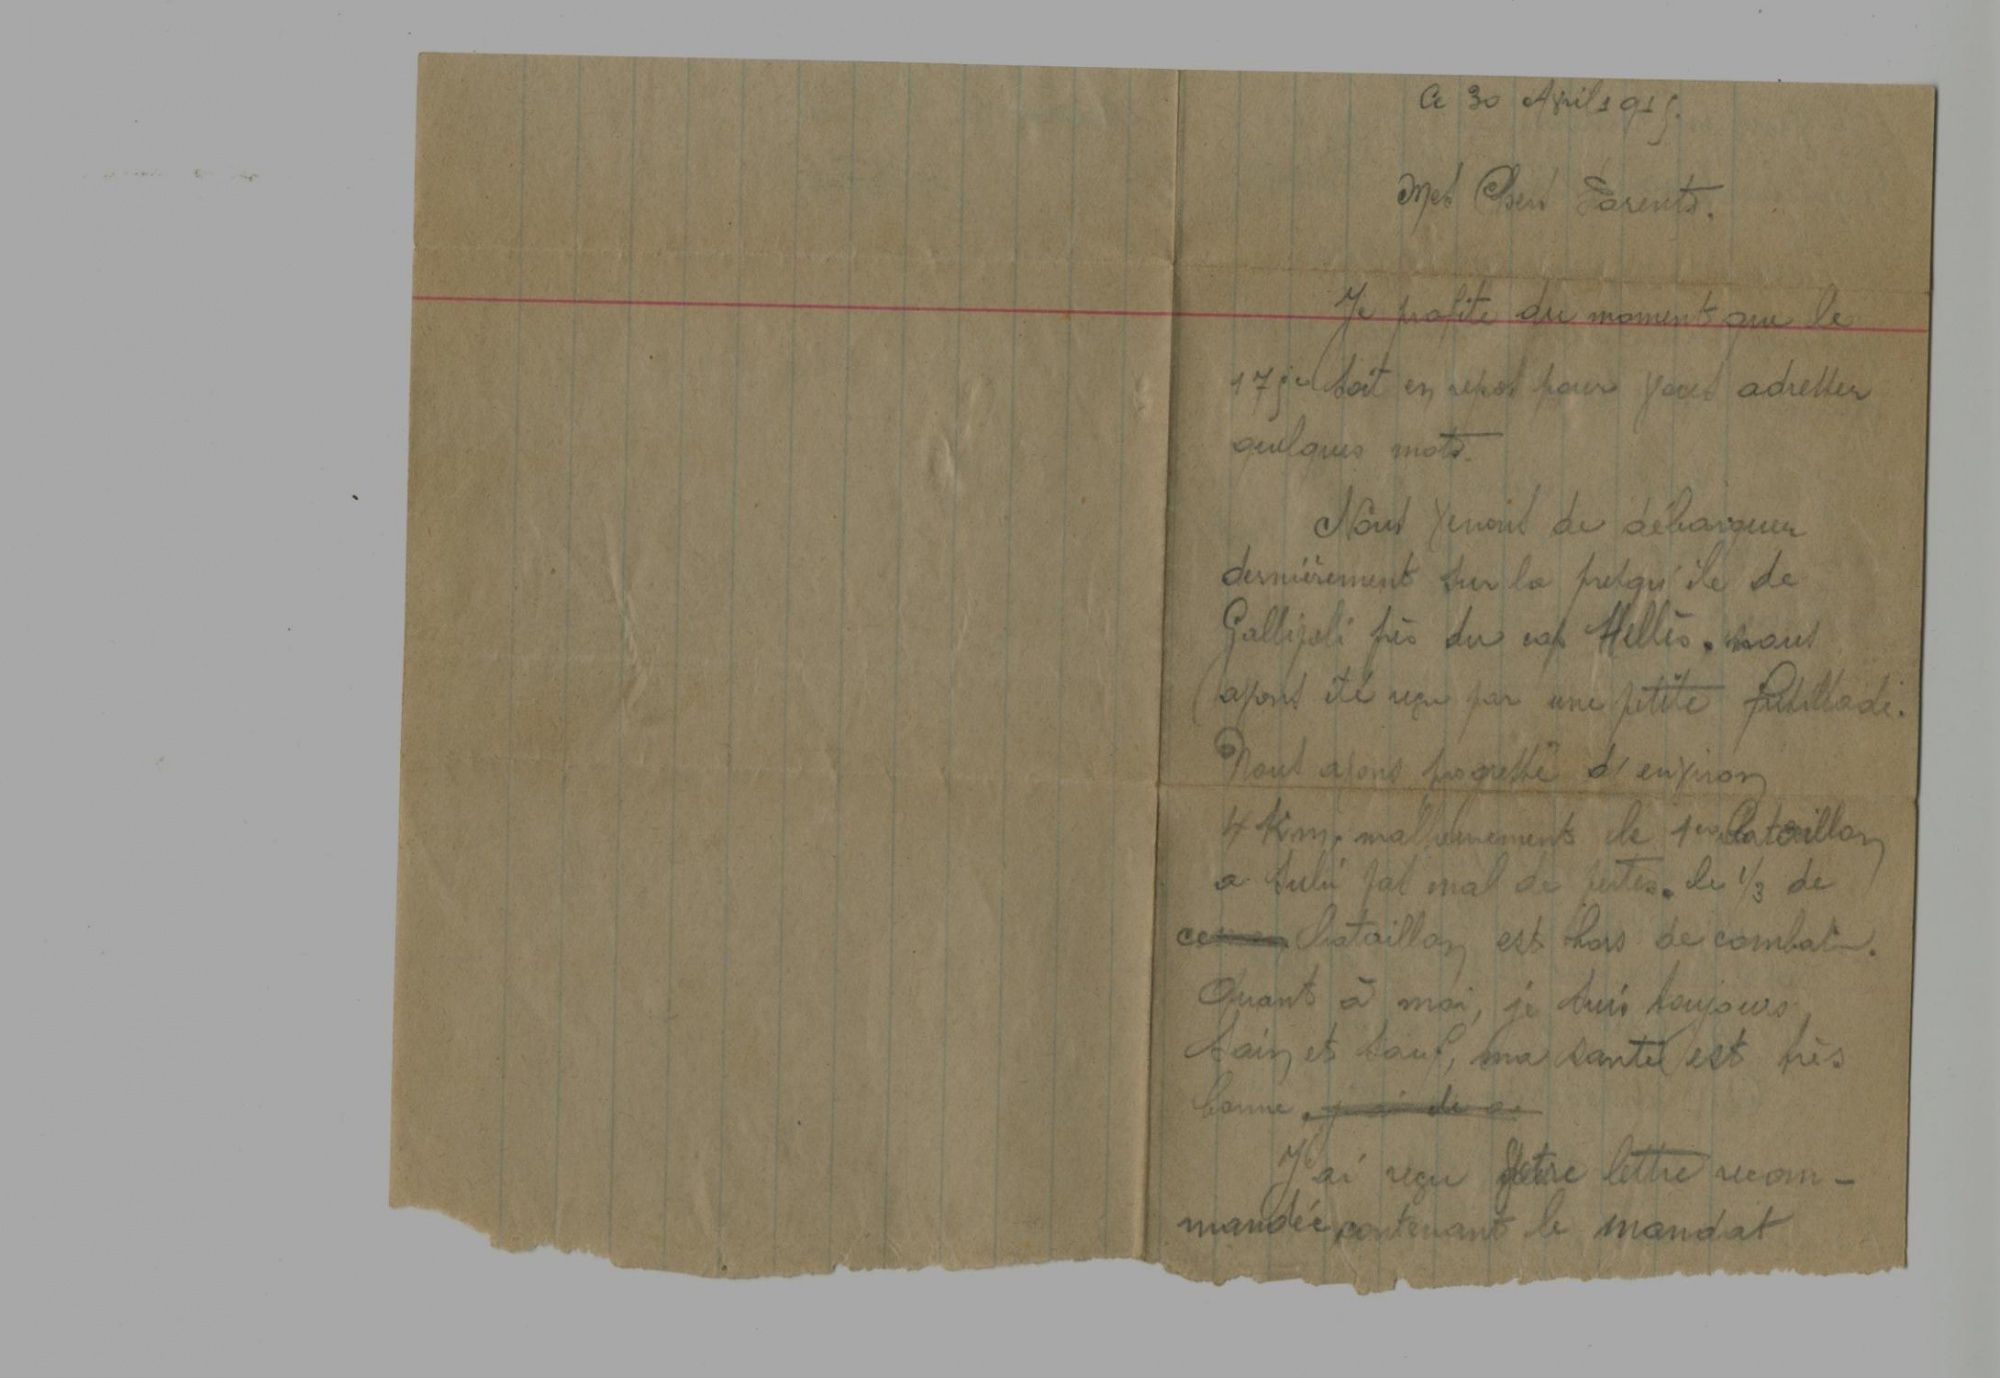 Ce 30 Avril 1915.
Mes Chers Parents.
Je profite du moment que le
175e soit en repos pour vous adresser
quelques mots.
Nous venons de débarquer
dernièrement sur la presqu'île de
Gallipoli près du cap Hellès. nous
avons été reçu par une petite fusillade.
Nous avons progressé d'environ
4 Km. malheureusement le 1er bataillon
a subi pas mal de pertes. le 1/3 de
ce bataillon est hors de combat.
Quant à moi, je suis toujours
sain et sauf, ma santé est très
bonne.
J'ai reçu votre lettre recom-
mandée contenant le mandat